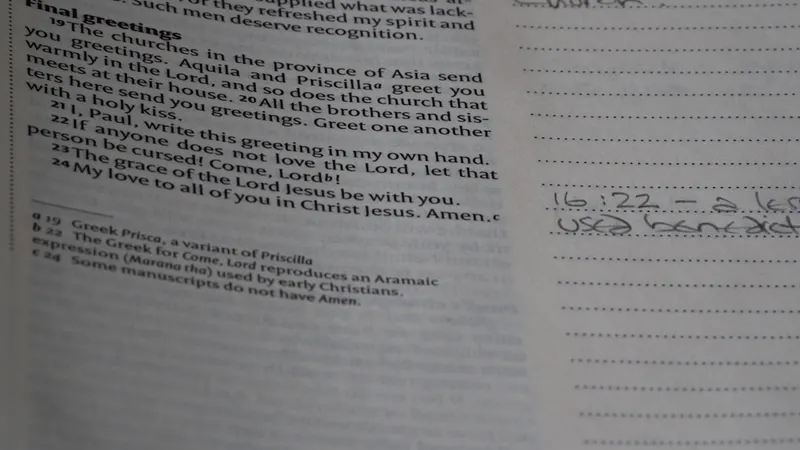 supplied what was lack-
they refreshed my spirit and
Such men deserve recognition.
Final greetings
19 The churches in the province of Asia send
you greetings. Aquila and Priscilla a greet you
warmly in the Lord, and so does the church that
meets at their house. 20 All the brothers and sis-
ters here send you greetings. Greet one another
with a holy kiss.
21 I, Paul, write this greeting in my own hand.
22 If anyone does not love the Lord, let that
person be cursed! Come, Lord b!
23 The grace of the Lord Jesus be with you.
24 My love to all of you in Christ Jesus. Amen. c
a 19 Greek Prisca, a variant of Priscilla
b 22 The Greek for Come, Lord reproduces an Aramaic
expression (Marana tha) used by early Christians.
c 24 Some manuscripts do not have Amen.
16:22 - a les
used benedict